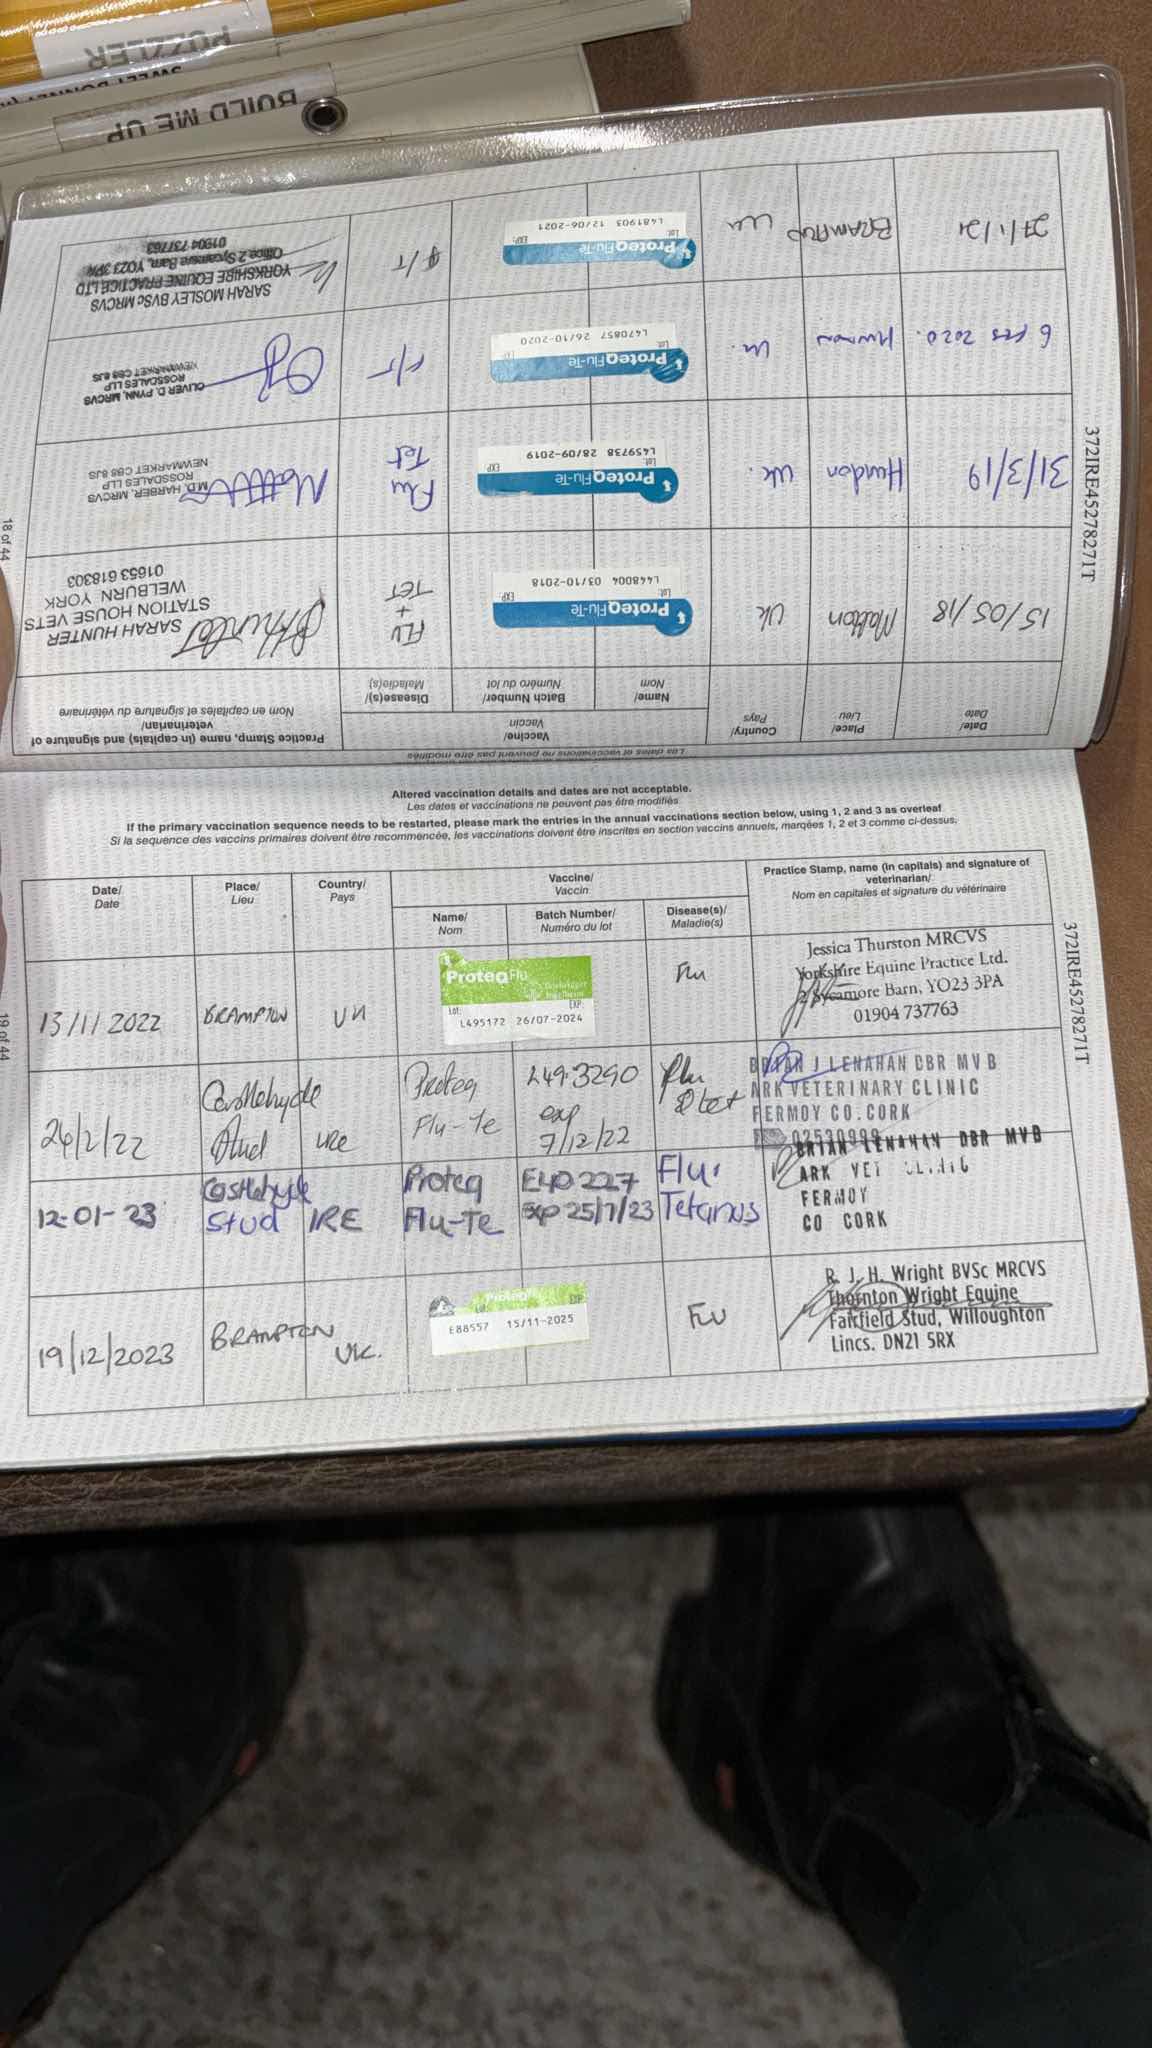 PUZZLER
SWEET BONNET
BUILD ME UP
18 of 44
372IRE45278271T
Les dates et vaccinations ne peuvent pas être modifiés
Date/
Date
Place/
Lieu
Country/
Pays
Vaccine/
Vaccin
Name/
Nom
Batch Number/
Numéro du lot
Disease(s)/
Maladie(s)
Practice Stamp, name (in capitals) and signature of
veterinarian/
Nom en capitales et signature du vétérinaire
15/05/18
Malton
UK
ProteqFlu-Te
Lot: EXP
L448004 03/10-2018
FLU
+
TET
SARAH HUNTER
STATION HOUSE VETS
WELBURN YORK
01653 618303
31/3/19
Hundon
UK.
ProteqFlu-Te
Lot: EXP
L459738 28/09-2019
Flu
Tet
M.D. HARBER, MRCVS
ROSSDALES LLP
NEWMARKET CB8 8JS
6 FEB 2020.
Hundon
UK.
ProteqFlu-Te
Lot: EXP
L470857 26/10-2020
F/T
OLIVER D. PYNN, MRCVS
ROSSDALES LLP
NEWMARKET CB8 8JS
27/1/21
BRAMPTON
UK
ProteqFlu-Te
Lot: EXP:
L481903 12/06-2021
F/T
SARAH MOSLEY BVSc MRCVS
YORKSHIRE EQUINE PRACTICE LTD
Office 2 Sycamore Barn, YO23 3PA
01904 737763
Altered vaccination details and dates are not acceptable.
Les dates et vaccinations ne peuvent pas être modifiés
If the primary vaccination sequence needs to be restarted, please mark the entries in the annual vaccinations section below, using 1, 2 and 3 as overleaf
Si la sequence des vaccins primaires doivent être recomencée, les vaccinations doivent être inscrites en section vaccins annuels, marqées 1, 2 et 3 comme ci-dessus.
Date/
Date
Place/
Lieu
Country/
Pays
Vaccine/
Vaccin
Name/
Nom
Batch Number/
Numéro du lot
Disease(s)/
Maladie(s)
Practice Stamp, name (in capitals) and signature of
veterinarian/
Nom en capitales et signature du vétérinaire
13/11 2022
BRAMPTON
UK
ProteqFlu
Boehringer
Ingelheim
Lot: EXP:
L495172 26/07-2024
Flu
Jessica Thurston MRCVS
Yorkshire Equine Practice Ltd.
2 Sycamore Barn, YO23 3PA
01904 737763
24/2/22
Castlehyde
Stud
IRE
Proteq
Flu-Te
L493290
exp
7/12/22
Flu
& tet
BRIAN J LENAHAN DBR MVB
ARK VETERINARY CLINIC
FERMOY CO.CORK
02530999
12-01-23
Castlehyde
Stud
IRE
Proteq
Flu-Te
E40227
exp 25/7/23
Flu.
Tetanus
BRIAN LENAHAN DBR MVB
ARK VET CLINIC
FERMOY
CO CORK
19/12/2023
BRAMPTON
UK.
ProteqFlu
Lot: EXP
E88557 15/11-2025
FLU
R. J. H. Wright BVSc MRCVS
Thornton Wright Equine
Fairfield Stud, Willoughton
Lincs. DN21 5RX
19 of 44
372IRE45278271T